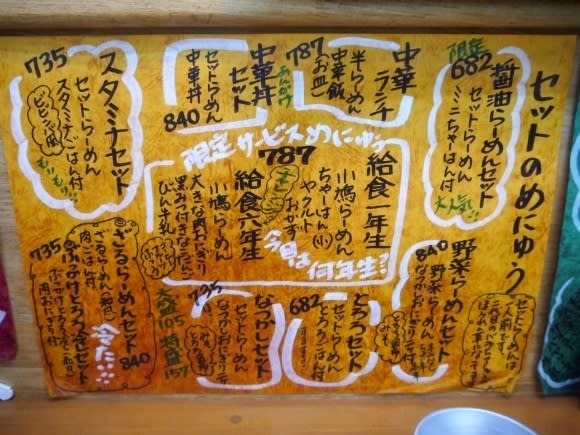 セットのめにゅう
セットらーめんは
一人前です
限定
682
醤油らーめんセット
セットらーめん
ミニちゃーはん付
大人気!!
中華ランチ
787
半らーめん
中華飯
お皿
中華丼セット
あんかけ
セットらーめん
中華丼
840
スタミナセット
735
セットらーめん
スタミナごはん付
ピリッ風
もりもり!!
限定サービスめにゅう
787
給食一年生
小鳩らーめん
ちゃーはん(小)
ヤクルト
おかず
給食六年生
小鳩らーめん
大きな肉おにぎり
黒み付きなたんご
びん牛乳
今日は何年生?
野菜らーめんセット
840
野菜らーめん
なつかおにぎり二ケ付
とろろセット
682
セットらーめん
とろろごはん付
なつかしセット
735
セットらーめん
なつかおにぎり二ケ
大盛105
特盛157
ざるらーめんセット
840
ざるらーめん(和風)
肉ごはん付
ぶっかけとろろ冷セット
735
ぶっかけとろろ冷(和風)
肉おにぎり付
冷たい